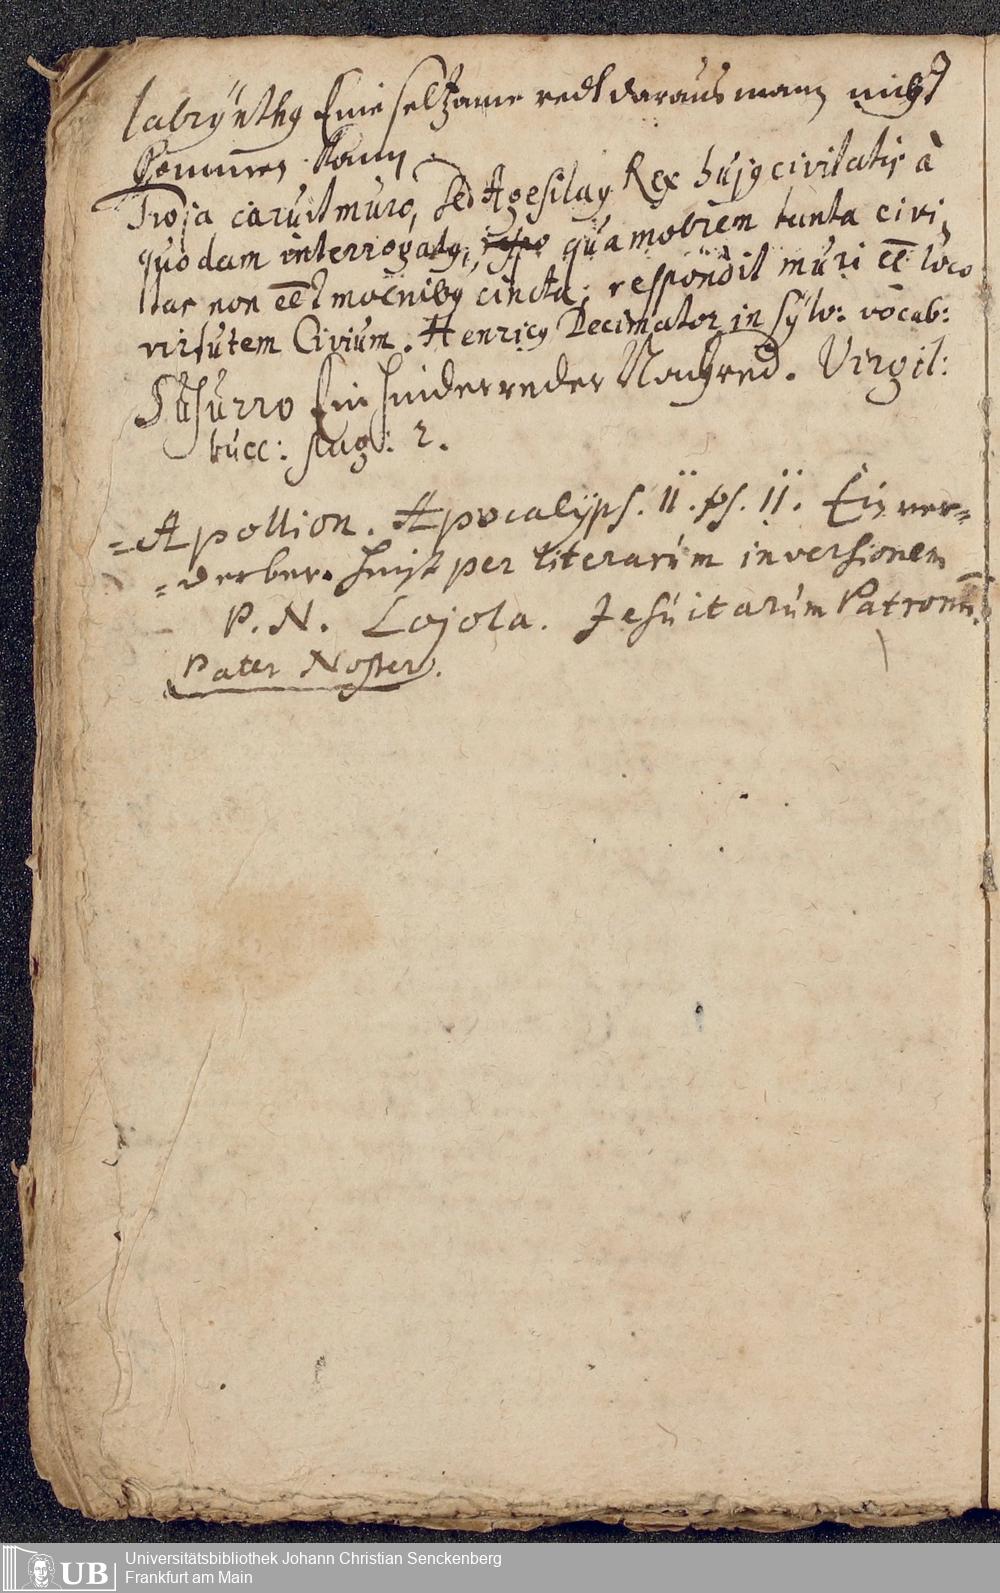 labrÿnthꝰ Eine seltzame redt daraus man nicht
kommen kann.
Troja caruit muro, sed Agesilaꝰ Rex hujꝰ civitatis à
quodam interrogatꝰ, quamobrem tanta civi-
tas non eēt moenibꝰ cincta; respondit muri eē loco
virtutem Civium. Henricꝰ Decimator in sÿlv: vocab:
Susurro Ein hinderreder Virgil:
bucc: pag: 2.
=Apollion. Apocalÿps. 11. ps. 11. Ein ver=
=derber. heist per literarum inversionem
P. N. Lojola. Jesuitarum Patronus.
Pater Noster.
UB
Universitätsbibliothek Johann Christian Senckenberg
Frankfurt am Main